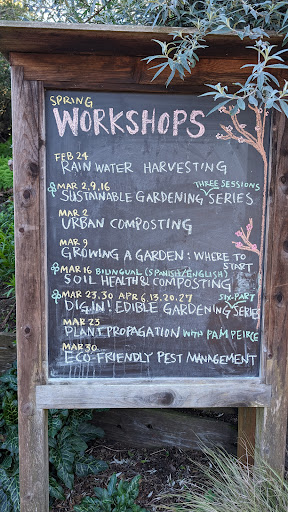 SPRING
WORKSHOPS
FEB 24
RAIN WATER HARVESTING
MAR 2,9,16 THREE SESSIONS
SUSTAINABLE GARDENING SERIES
MAR 2
URBAN COMPOSTING
MAR 9
GROWING A GARDEN: WHERE TO START
MAR 16 BILINGUAL (SPANISH/ENGLISH)
SOIL HEALTH & COMPOSTING
MAR 23.30 APR 6,13.20.27 SIX-PART
DIG IN! EDIBLE GARDENING SERIES
MAR 23
PLANT PROPAGATION WITH PAM PEIRCE
MAR 30
ECO-FRIENDLY PEST MANAGEMENT